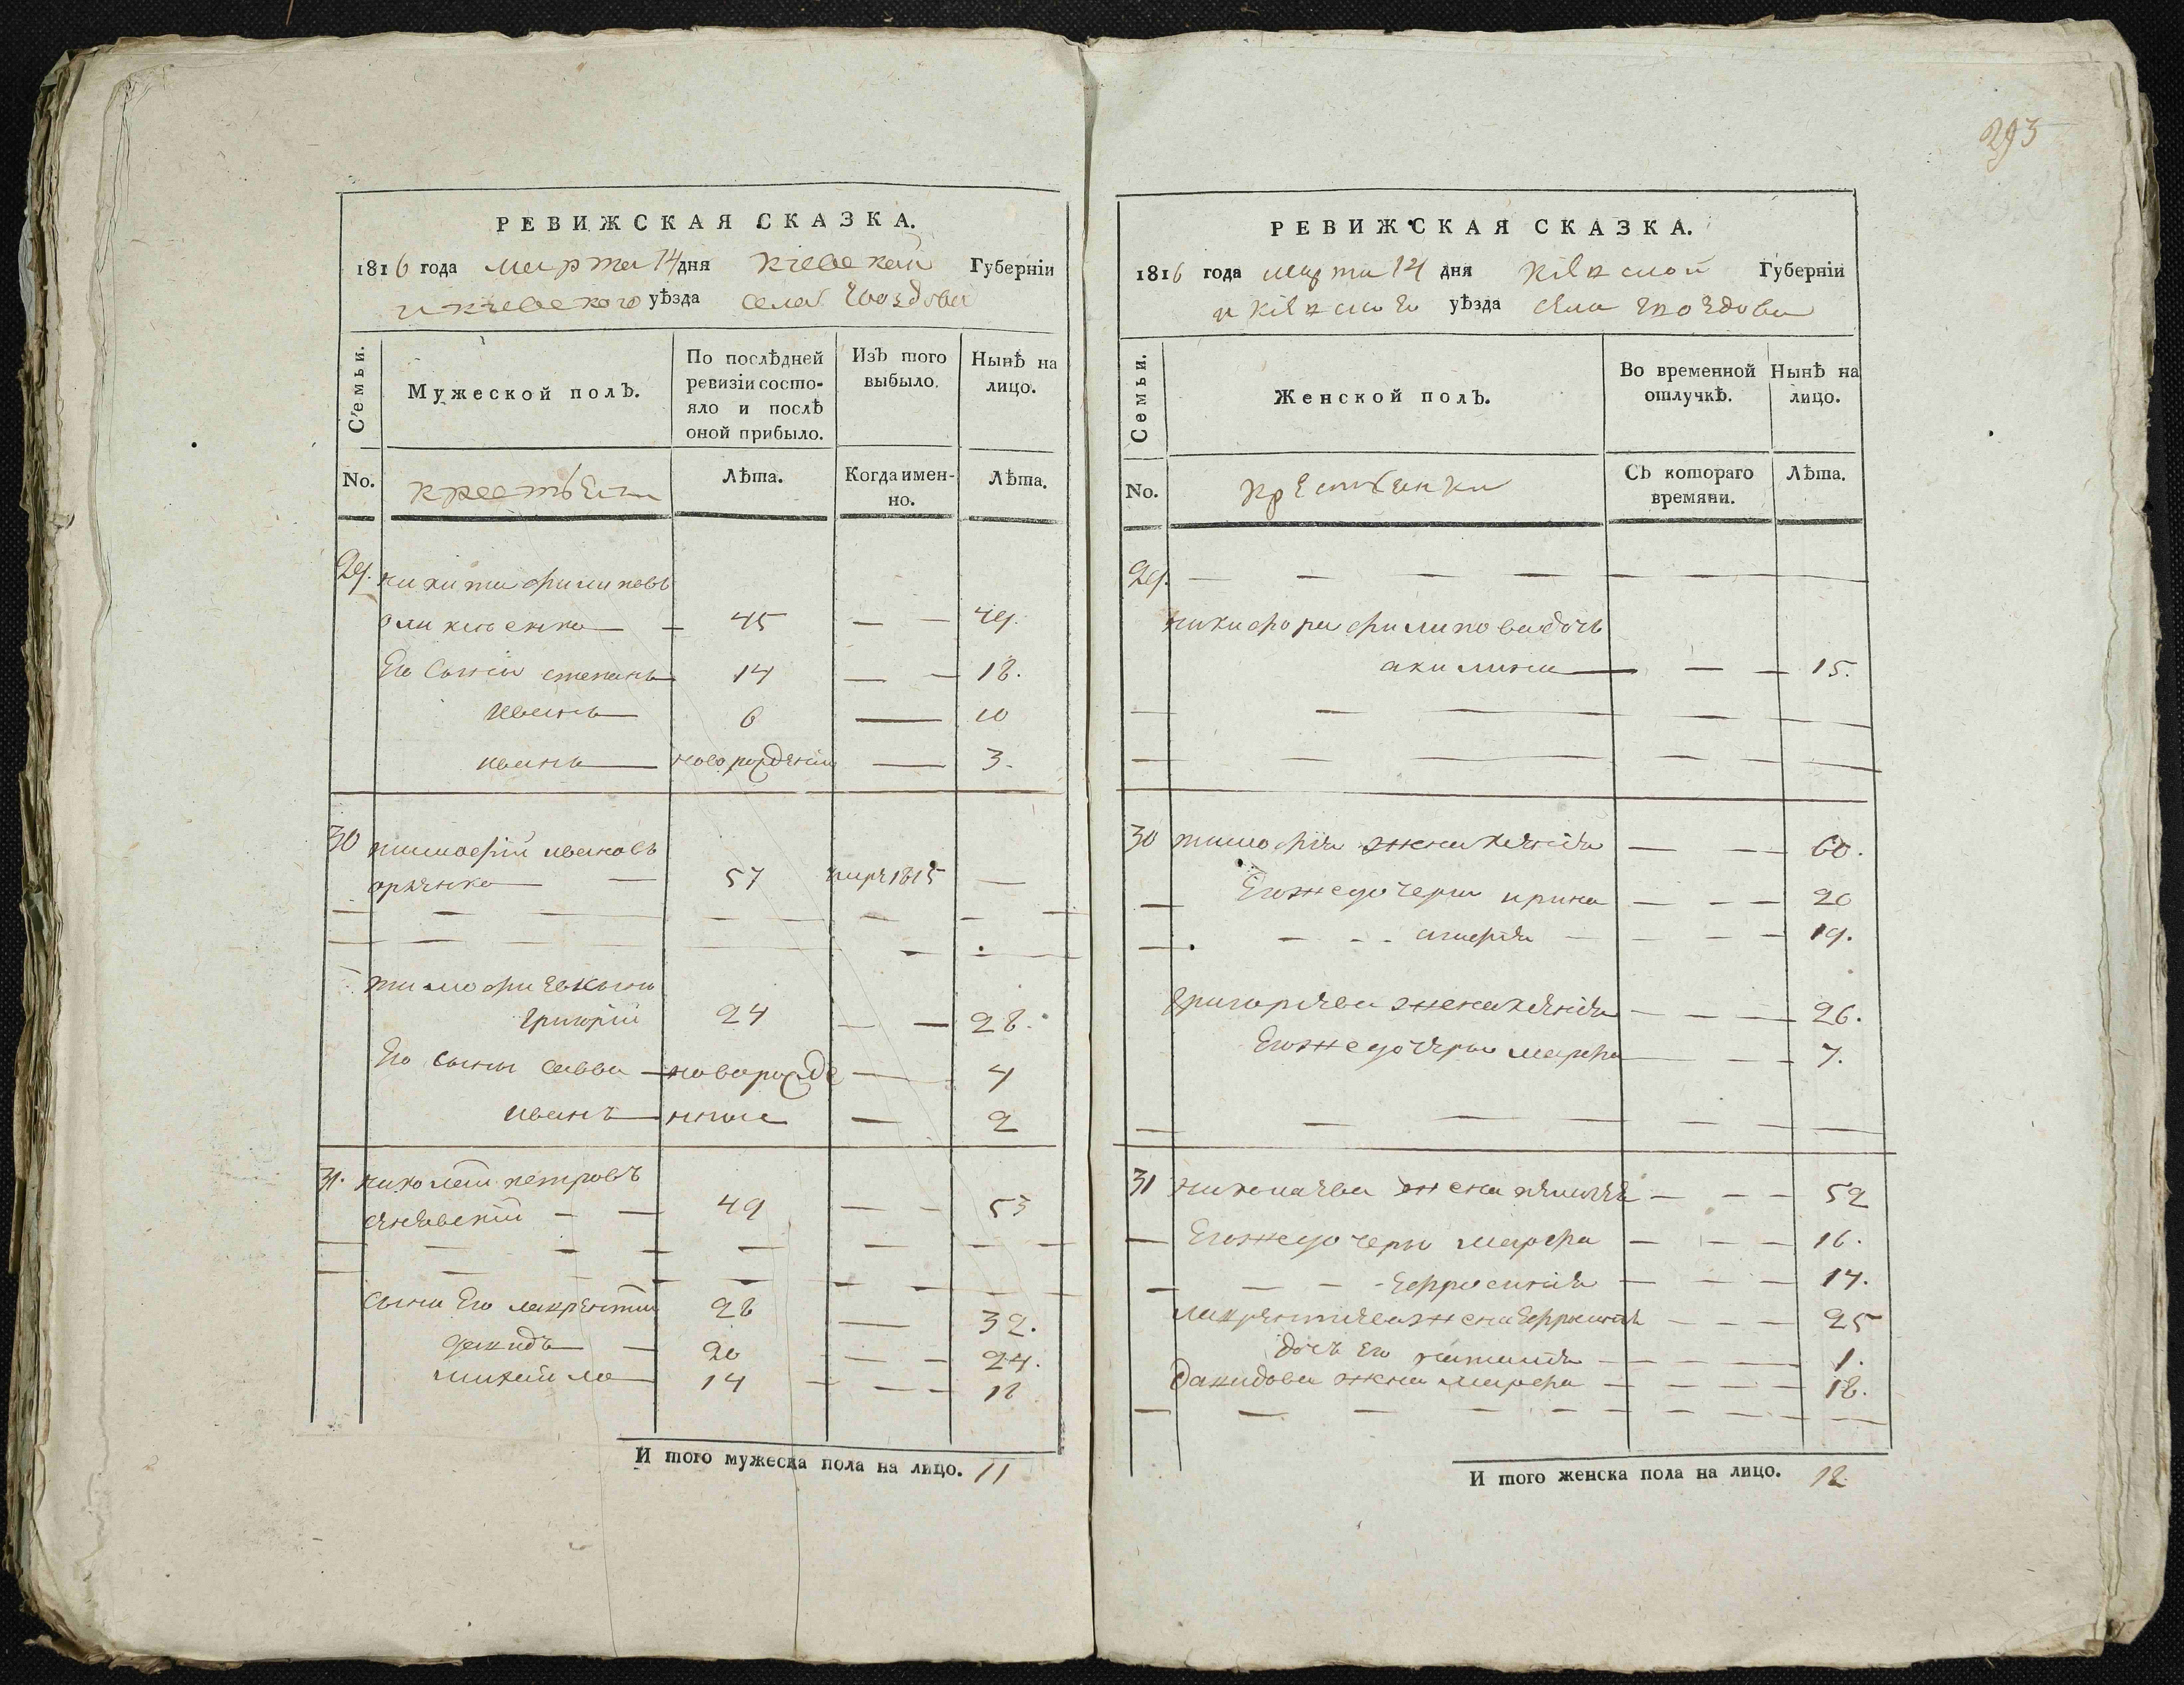 293
РЕВИЖСКАЯ СКАЗКА.
1816 года марта 14 дня Кіевской Губерніи
и Кіевского уѣзда села Гвоздова
Семьи.
Мужеской полъ.
По послѣдней ревизіи состо-
яло и послѣ
оной прибыло.
Изъ того
выбыло.
Нынѣ на
лицо.
No.
крестьяни
Лѣта.
Когда имен-
но.
Лѣта.
29. никита филиповъ
45 — — 49.
его сыны степанъ 14 — — 18.
иванъ 6 — 10
иванъ новорожденій — 3.
30 тимофій ивановъ
57 1815 —
тимофіевы сыны
григорій 24 — — 28.
его сыны савва новорожде — 4
иванъ нные — 2
31. николай петровъ
49 — — 53
сыны его лаврентій 28 — 32.
давидъ — 20 — — 24.
михайло 14 — — 18
И того мужеска пола на лицо. 11
РЕВИЖСКАЯ СКАЗКА.
1816 года марта 14 дня Кіевской Губерніи
и Кіевского уѣзда села Гвоздова
Семьи.
Женской полъ.
Во временной
отлучкѣ.
Нынѣ на
лицо.
No.
крестьянки
Съ котораго
времяни.
Лѣта.
29. — — — —
никифора филипова дочь
акилина — — — 15.
30 тимофія жена ксенія — — 60.
Его же дочери ирина — — — 20
— — — — 19.
григоріева жена ксенія — — — 26.
Его же дочеры марфа — — 7.
31 николаева жена — — — 52
Его же дочеры марфа — — — 16.
Ефросинія — — — 14.
лаврентіева жена Ефросинія — — — 25
дочь его наталія — — — — 1.
Давидова жена марфа — — — — 18.
И того женска пола на лицо. 12